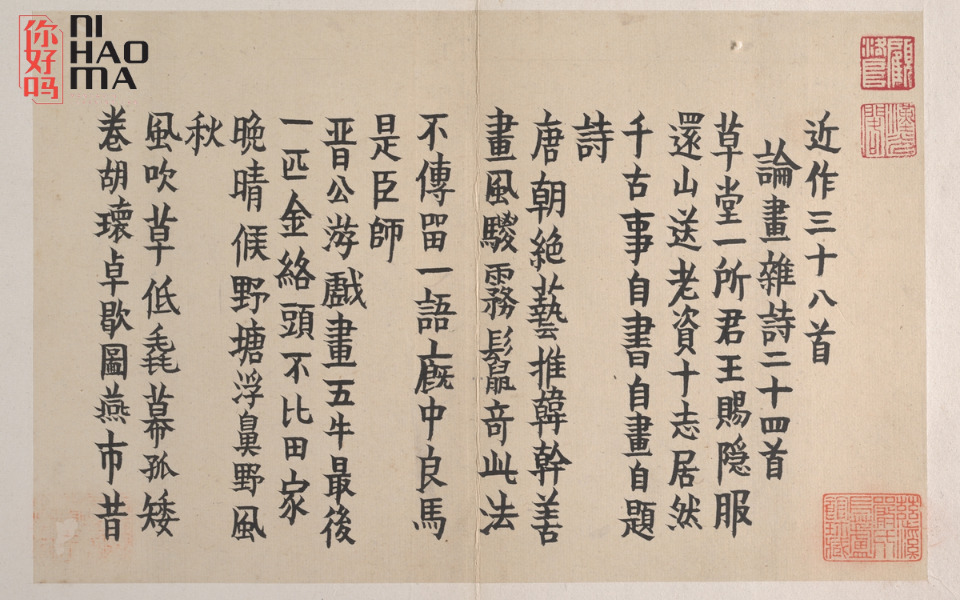 你好吗
NI
HAO
MA
近作三十八首
論畫雜詩二十四首
草堂一所君王賜隐服
還山送老資十志居然
千古事自書自畫自題
詩
唐朝絕藝推韓幹善
畫風騣霧鬣奇此法
不傳留一語廐中良馬
是臣師
晋公游戲畫五牛最後
一匹金絡頭不比田家
晚晴候野塘浮鼻野風
秋
風吹草低毳幕孤矮
卷胡瓌卓歇圖燕市昔